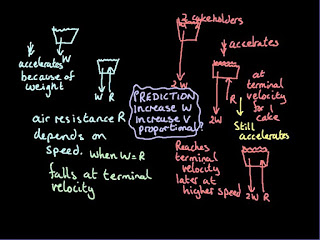 W
accelerates
because of
weight
W R
air resistance R
depends on
speed. When W=R
falls at terminal
velocity
2 cakeholders
2W
PREDICTION
increase W
increase V
proportional?
accelerates
2W R
at
terminal
velocity
for 1
cake
Still
accelerates
Reaches
terminal
velocity
later at
higher speed
2W R